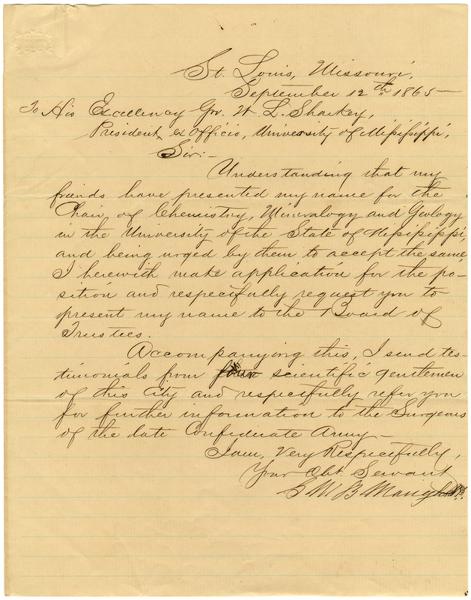 St. Louis, Missouri,
September 12th 1865—
To His Excellency Gov. W. L. Sharkey,
President, ex Officio, University of Mississippi,
Sir:—
Understanding that my
friends have presented my name for the
Chair of Chemistry, Mineralogy and Geology
in the University of the State of Mississippi
and being urged by them to accept the same
I herewith make application for the po-
sition and respectfully request you to
present my name to the Board of
Trustees.
Accompanying this, I send tes-
timonials from scientific gentlemen
of this City and respectfully refer you
for further information to the Surgeons
of the late Confederate Army—
I am, Very Respectfully,
Your Obt Servant
G W B Maughs